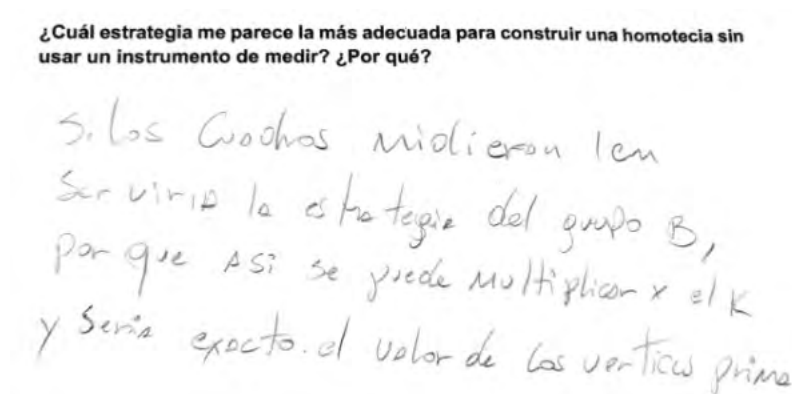 ¿Cuál estrategia me parece la más adecuada para construir una homotecia sin
usar un instrumento de medir? ¿Por qué?
Si los Cuadros midieron 1cm
Serviria la estrategia del grupo B,
por que Asi se puede Multiplicar x el K
y Seria exacto. el valor de Los vertices prima